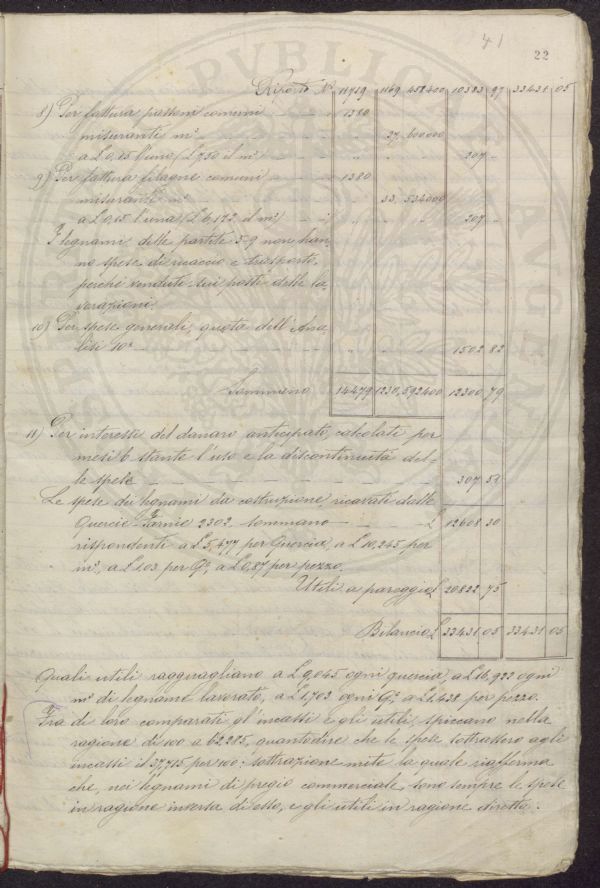 41
22
Riporto N.° 11719 1169, 458400 10383 97 33431 05
8) Per fattura passoni comuni — — " 1380
misuranti m.c — — — — 27, 600000
a L 0,15 l'uno (L 7,50 il m.c) — — 207 –
9) Per fattura filagne comuni — — " 1380
misuranti m.c — — — — 33, 534000
a L 0,15 l'una (L 6,172 il m.c) — 207 –
I legnami delle partite 5-9 non han-
no spese di ricaccio e trasporto,
perchè venduti sui posti delle la-
vorazioni.
10) Per spese generali, quota dell'Ana-
lisi 10.a — — — — — 1502 82
Sommano 14479 1230, 592400 12300 79
11) Per interessi del danaro anticipato, calcolati per
mesi 6 stante l'uso e la discontinuità del-
le spese — — — — — 307 51
Le spese dei legnami da costruzione, ricavati dalle
Quercie-Farnie 2302. sommano — — — L 12608 30
rispondenti a L 5,477 per Quercia, a L 10,245 per
m.c, a L 1,03 per Q.le, a L 0,87 per pezzo.
Utili a pareggio L 20822 75
Bilancio L 33431 05 33431 05
Quali utili ragguagliano a L 9,045 ogni quercia, a L 16,923 ogni
m.c di legname lavorato, a L 1,703 ogni Q.le a L 1,438 per pezzo.
Fra di loro comparati gl'incassi e gli utili, spiccano nella
ragione di 100 a 62,285, quantodire che le spese sottrassero agli
incassi il 37,715 per 100: sottrazione mite la quale riafferma
che, nei legnami di pregio commerciale, sono sempre le spese
in ragione inversa di esso, e gli utili in ragione diretta.